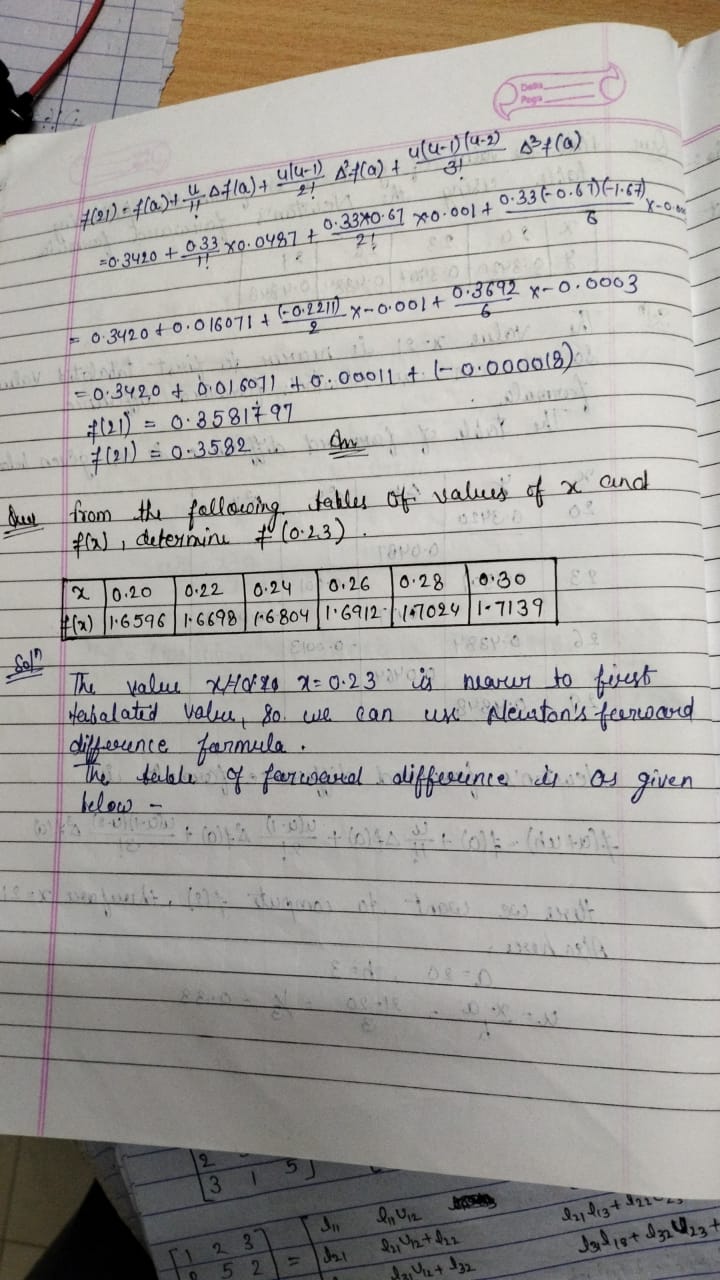 Date
Page
f(21) = f(a) + u/1! Δf(a) + u(u-1)/2! Δ²f(a) + u(u-1)(u-2)/3! Δ³f(a)
= 0.3420 + 0.33/1! x 0.0487 + 0.33x0.67/2! x0.001 + 0.33(-0.67)(-1.67)/6 x-0.00
= 0.3420 + 0.016071 + (-0.2211)/2 x-0.001 + 0.3692/6 x-0.0003
= 0.3420 + 0.016071 + 0.00011 + (-0.000018)
f(21) = 0.3581797
f(21) = 0.3582 Ans
Que from the following tables of values of x and
f(x), determine f (0.23).
x 0.20 0.22 0.24 0.26 0.28 0.30
f(x) 1.6596 1.6698 1.6804 1.6912 1.7024 1.7139
Solⁿ
The value x = 0.23 is nearer to first
tabalated value, so we can use Neinton's feerward
difference farmula.
The table of farward difference is as given
below -
2
3 1 5
1 2 3
5 2
=
l11 l11 u12
l21 l21 u12 + l22 l21 l13 + l22
l31 u12 + l32 l31 l18 + l32 u23 +